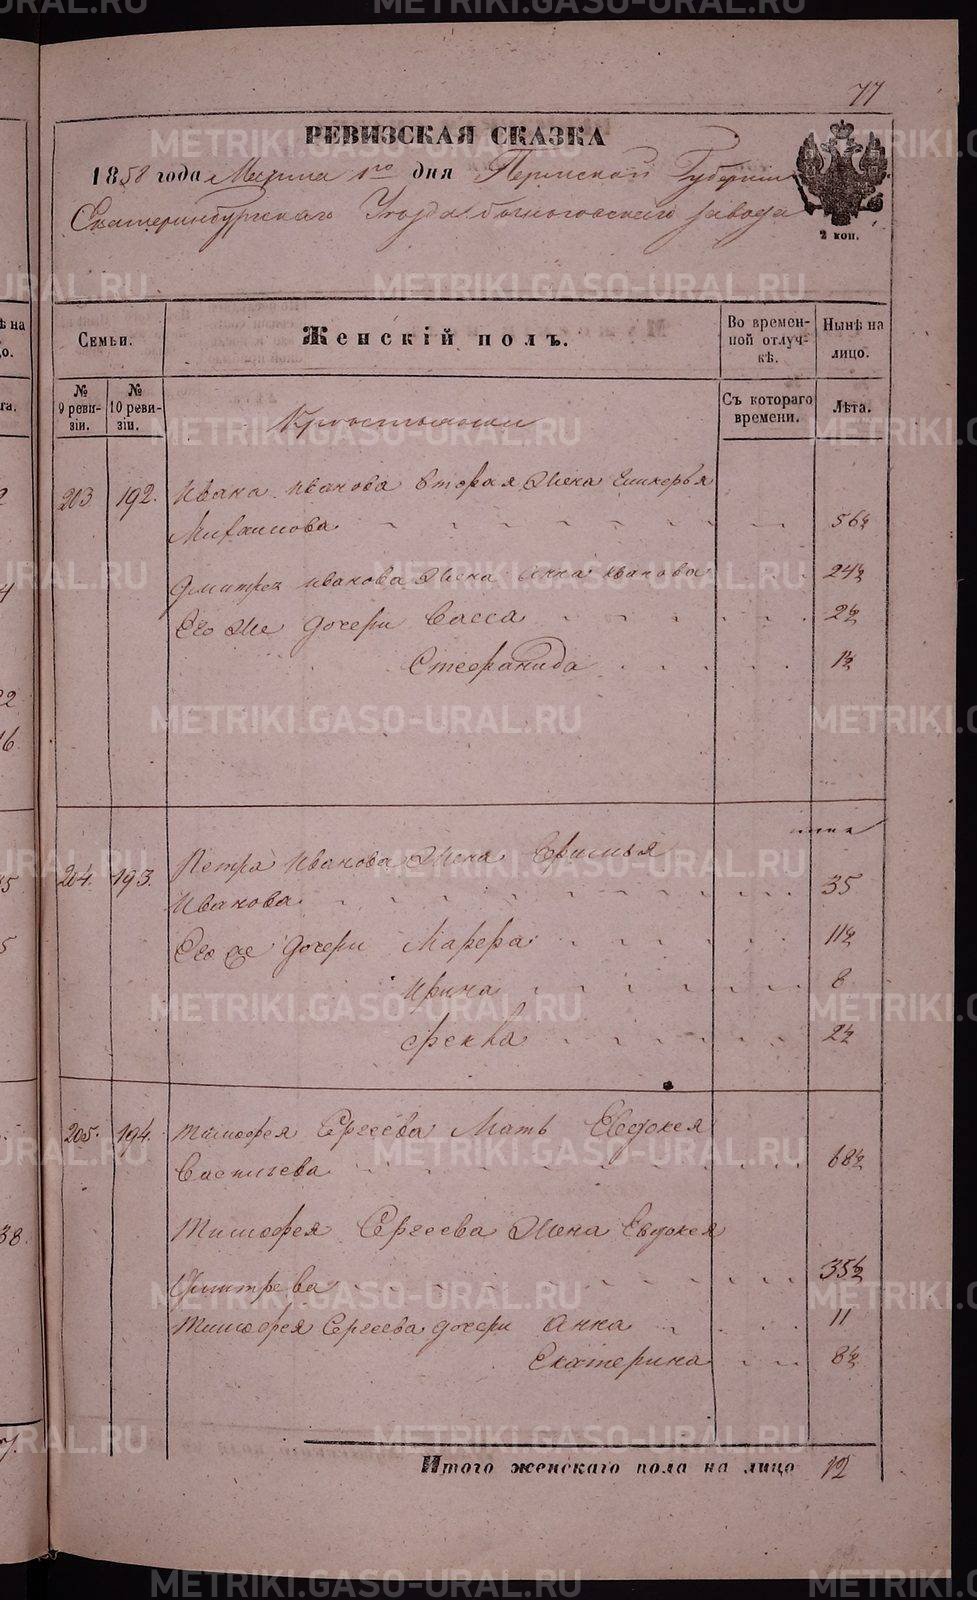 77
РЕВИЗСКАЯ СКАЗКА
1858 года Марта 1го дня Пермской Губернии
Екатеринбургскаго Уезда завода
2 коп.
Семьи.
Женскій полъ.
Во времен-
ной отлуч-
кѣ.
Нынѣ на
лицо.
№
9 реви-
зіи.
№
10 реви-
зіи.
Съ котораго
времени.
Лѣта.
203 192. Ивана Иванова вторая жена
Михаилова 56½
Дмитрея Иванова жена Анна Иванова 24½
Его же дочери Васса 2½
Стефанида 1½
204. 193. Петра Иванова жена Ефимья
Иванова 35
Его же дочери Марфа 11½
Ирина 8
Фекла 2½
205. 194. Тимофея Ергеева Мать Евдокея
Васильева 68½
Тимофея Ергеева жена Евдокея
Дмитрева 35½
Тимофея Ергеева дочери Анна 11
Екатерина 8½
Итого женскаго пола на лицо 12
METRIKI.GASO-URAL.RU